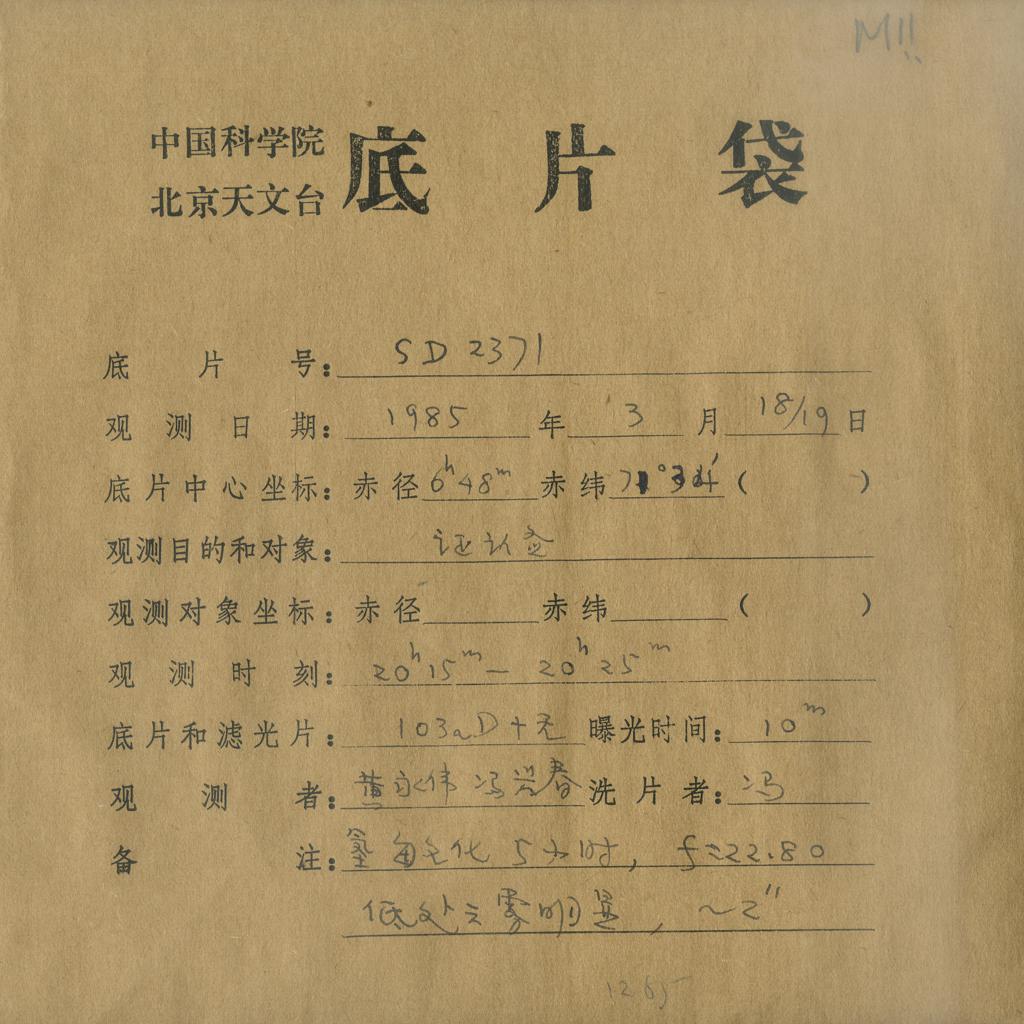 M!!
中国科学院 底片袋
北京天文台
底片号: SD 2371
观测日期: 1985 年 3 月 18/19 日
底片中心坐标: 赤径 6h48m 赤纬 71°34′ ( )
观测目的和对象: 证认
观测对象坐标: 赤径 赤纬 ( )
观测时刻: 20h15m — 20h25m
底片和滤光片: 103aD+无 曝光时间: 10m
观测者: 黄永伟 冯兴春 洗片者: 冯
备注: 敏化 5小时, f=22.80
低处云雾明显, ~2″
1265